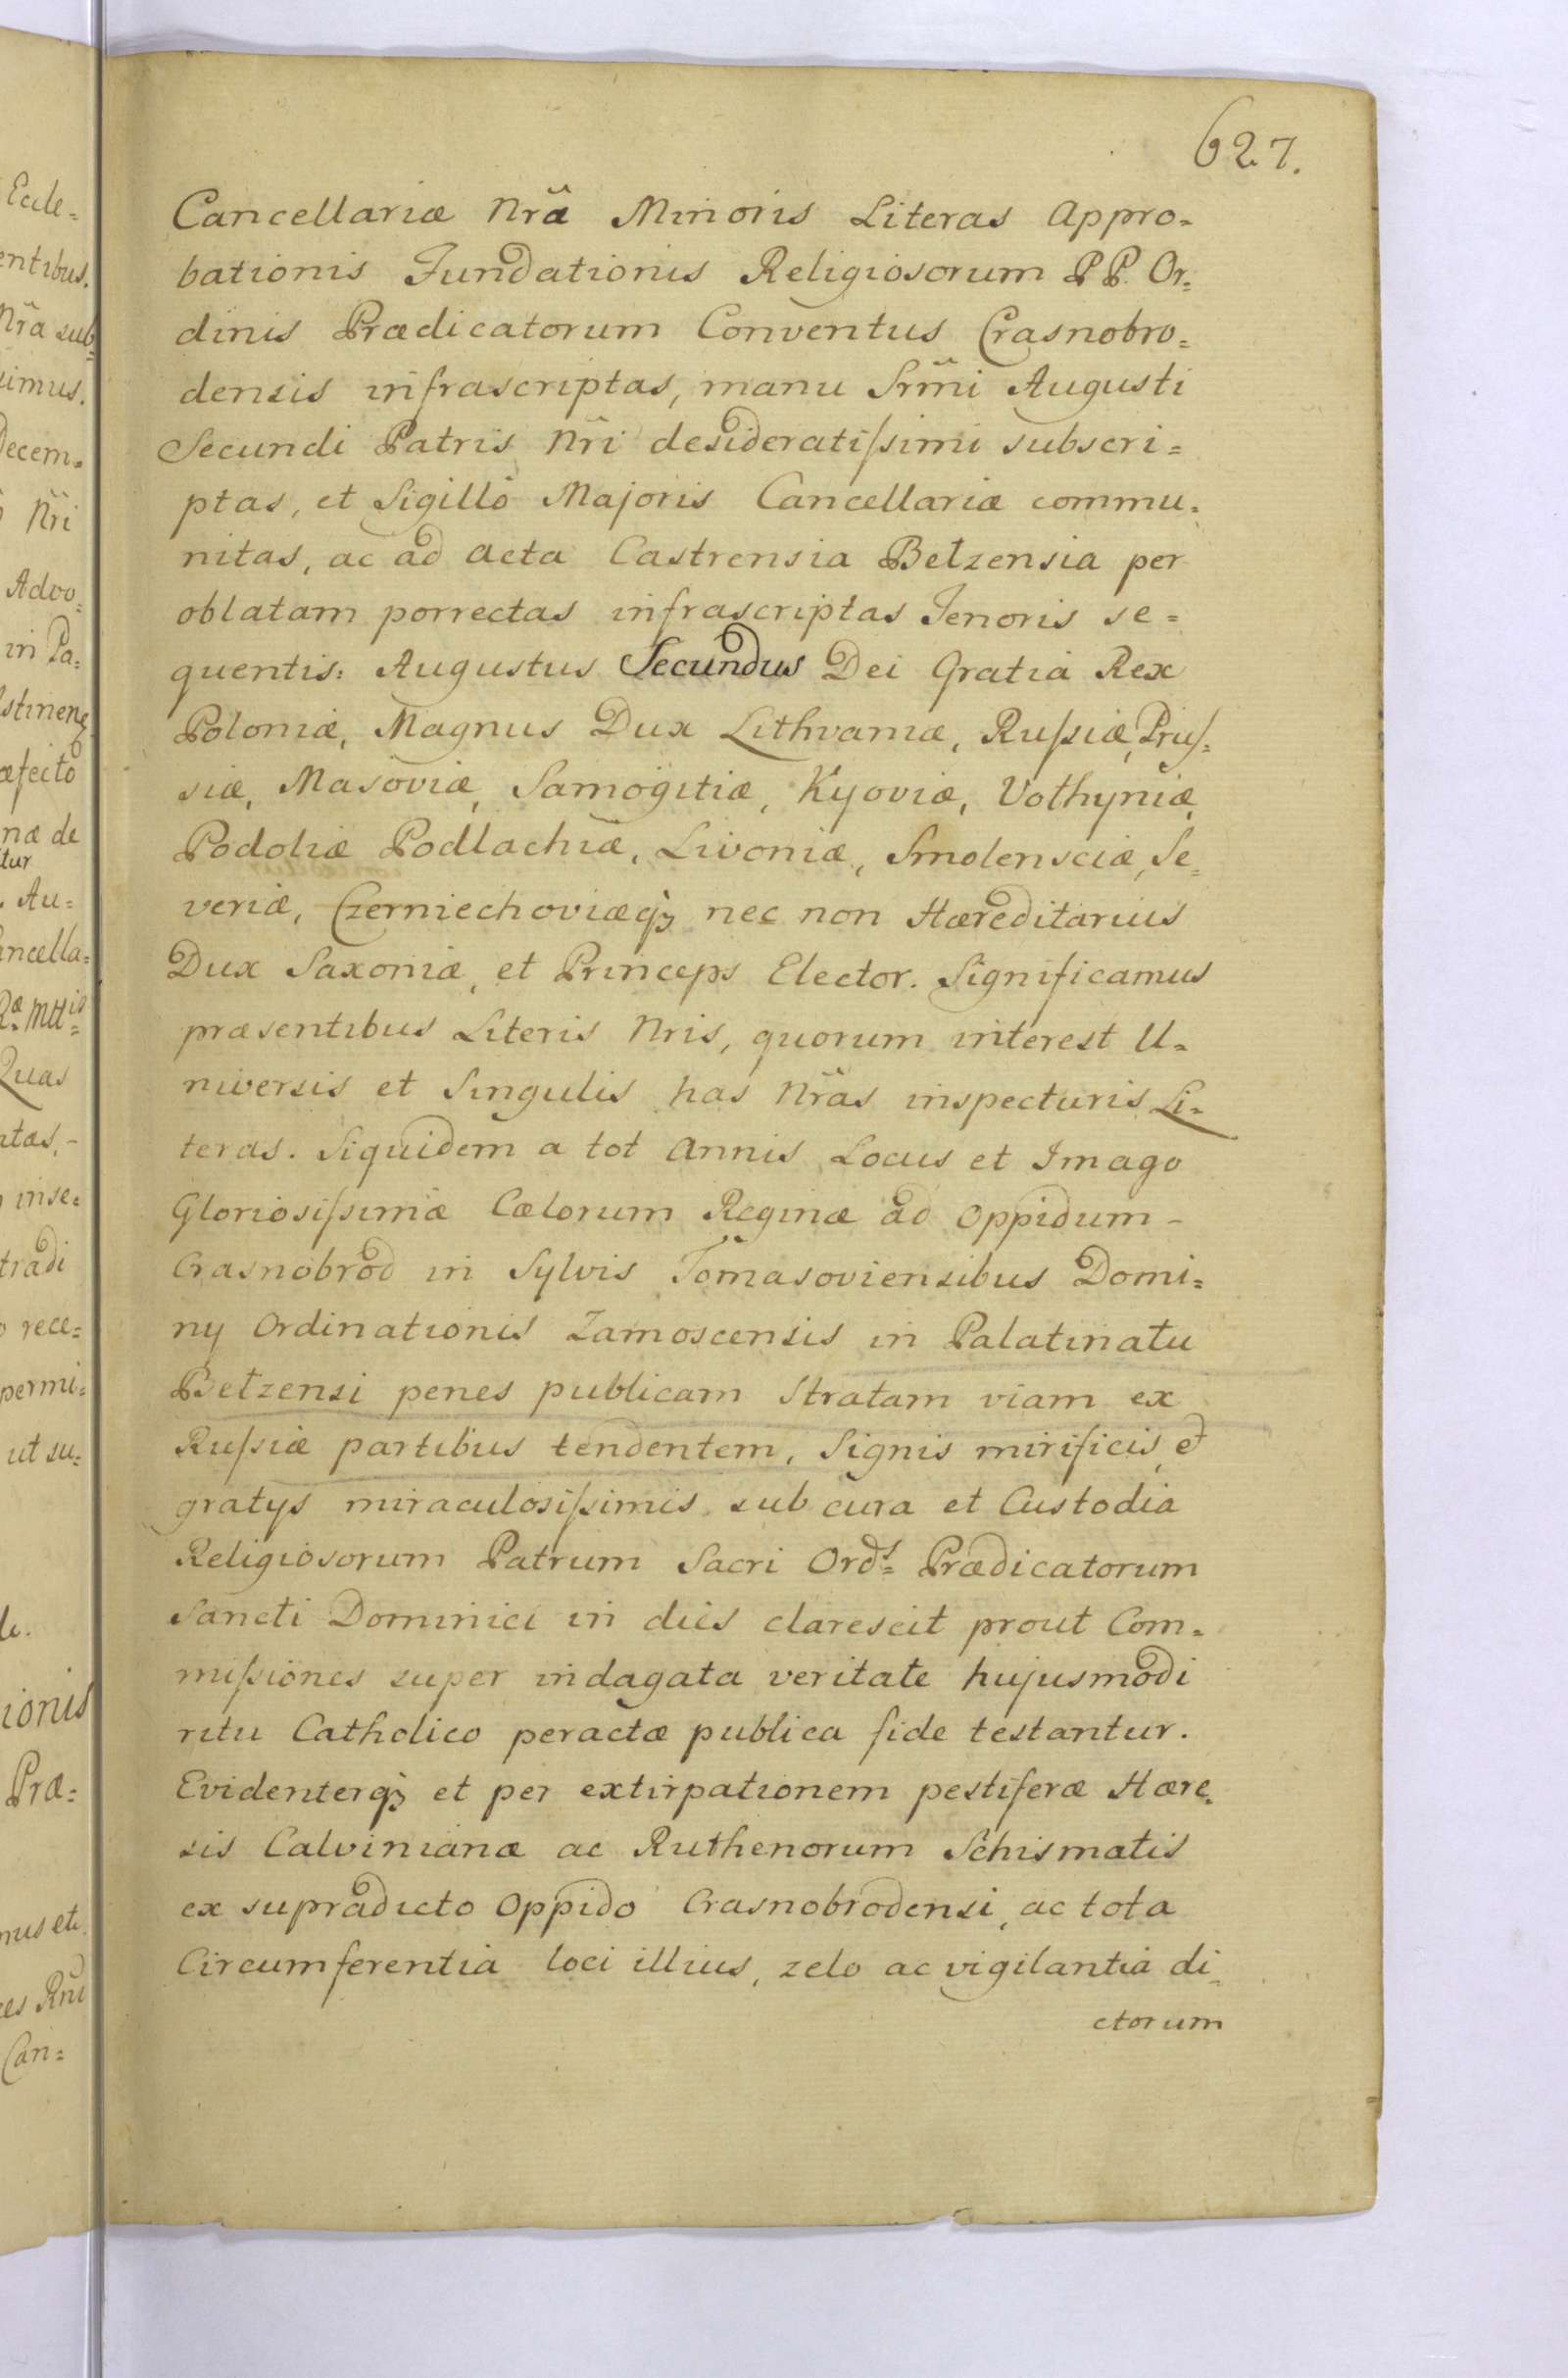 627.
Cancellariæ Nr̃æ Minoris Literas Appro=
bationis Fundationis Religiosorum PP. Or=
dinis Prædicatorum Conventus Crasnobro=
densis infrascriptas, manu Srm̃i Augusti
Secundi Patris Nr̃i desideratiſsimi subscri=
ptas, et Sigillô Majoris Cancellariæ commu=
nitas, ac ad acta Castrensia Belzensia per
oblatam porrectas infrascriptas Tenoris se=
quentis: Augustus Secundus Dei Gratiâ Rex
Poloniæ, Magnus Dux Lithvaniæ, Ruſsiæ, Pruſ=
siæ, Masoviæ, Samogitiæ, Kyoviæ, Volhyniæ,
Podoliæ Podlachiæ, Livoniæ, Smolensciæ, Se=
veriæ, Czerniechoviæq; nec non Hæreditarius
Dux Saxoniæ, et Princeps Elector. Significamus
præsentibus Literis Nris, quorum interest U=
niversis et Singulis has Nr̃as inspecturis Li=
teras. Siquidem a tot Annis Locus et Imago
Gloriosiſsimæ Cælorum Reginæ ad Oppidum -
Crasnobrod in Sylvis Tomasoviensibus Domi=
ny Ordinationis Zamoscensis in Palatinatu
Belzensi penes publicam Stratam viam ex
Ruſsiæ partibus tendentem, Signis mirificis, et
gratys miraculosiſsimis sub cura et Custodia
Religiosorum Patrum Sacri Ord:s Prædicatorum
Sancti Dominici in diès clarescit prout Com=
miſsiones super indagata veritate hujusmodi
ritu Catholico peractæ publica fide testantur.
Evidenterq; et per extirpationem pestiferæ Hære=
sis Calvinianæ ac Ruthenorum Schismatis
ex supradicto Oppido Crasnobrodensi, ac tota
Circumferentia loci illius, zelo ac vigilantiâ di=
ctorum